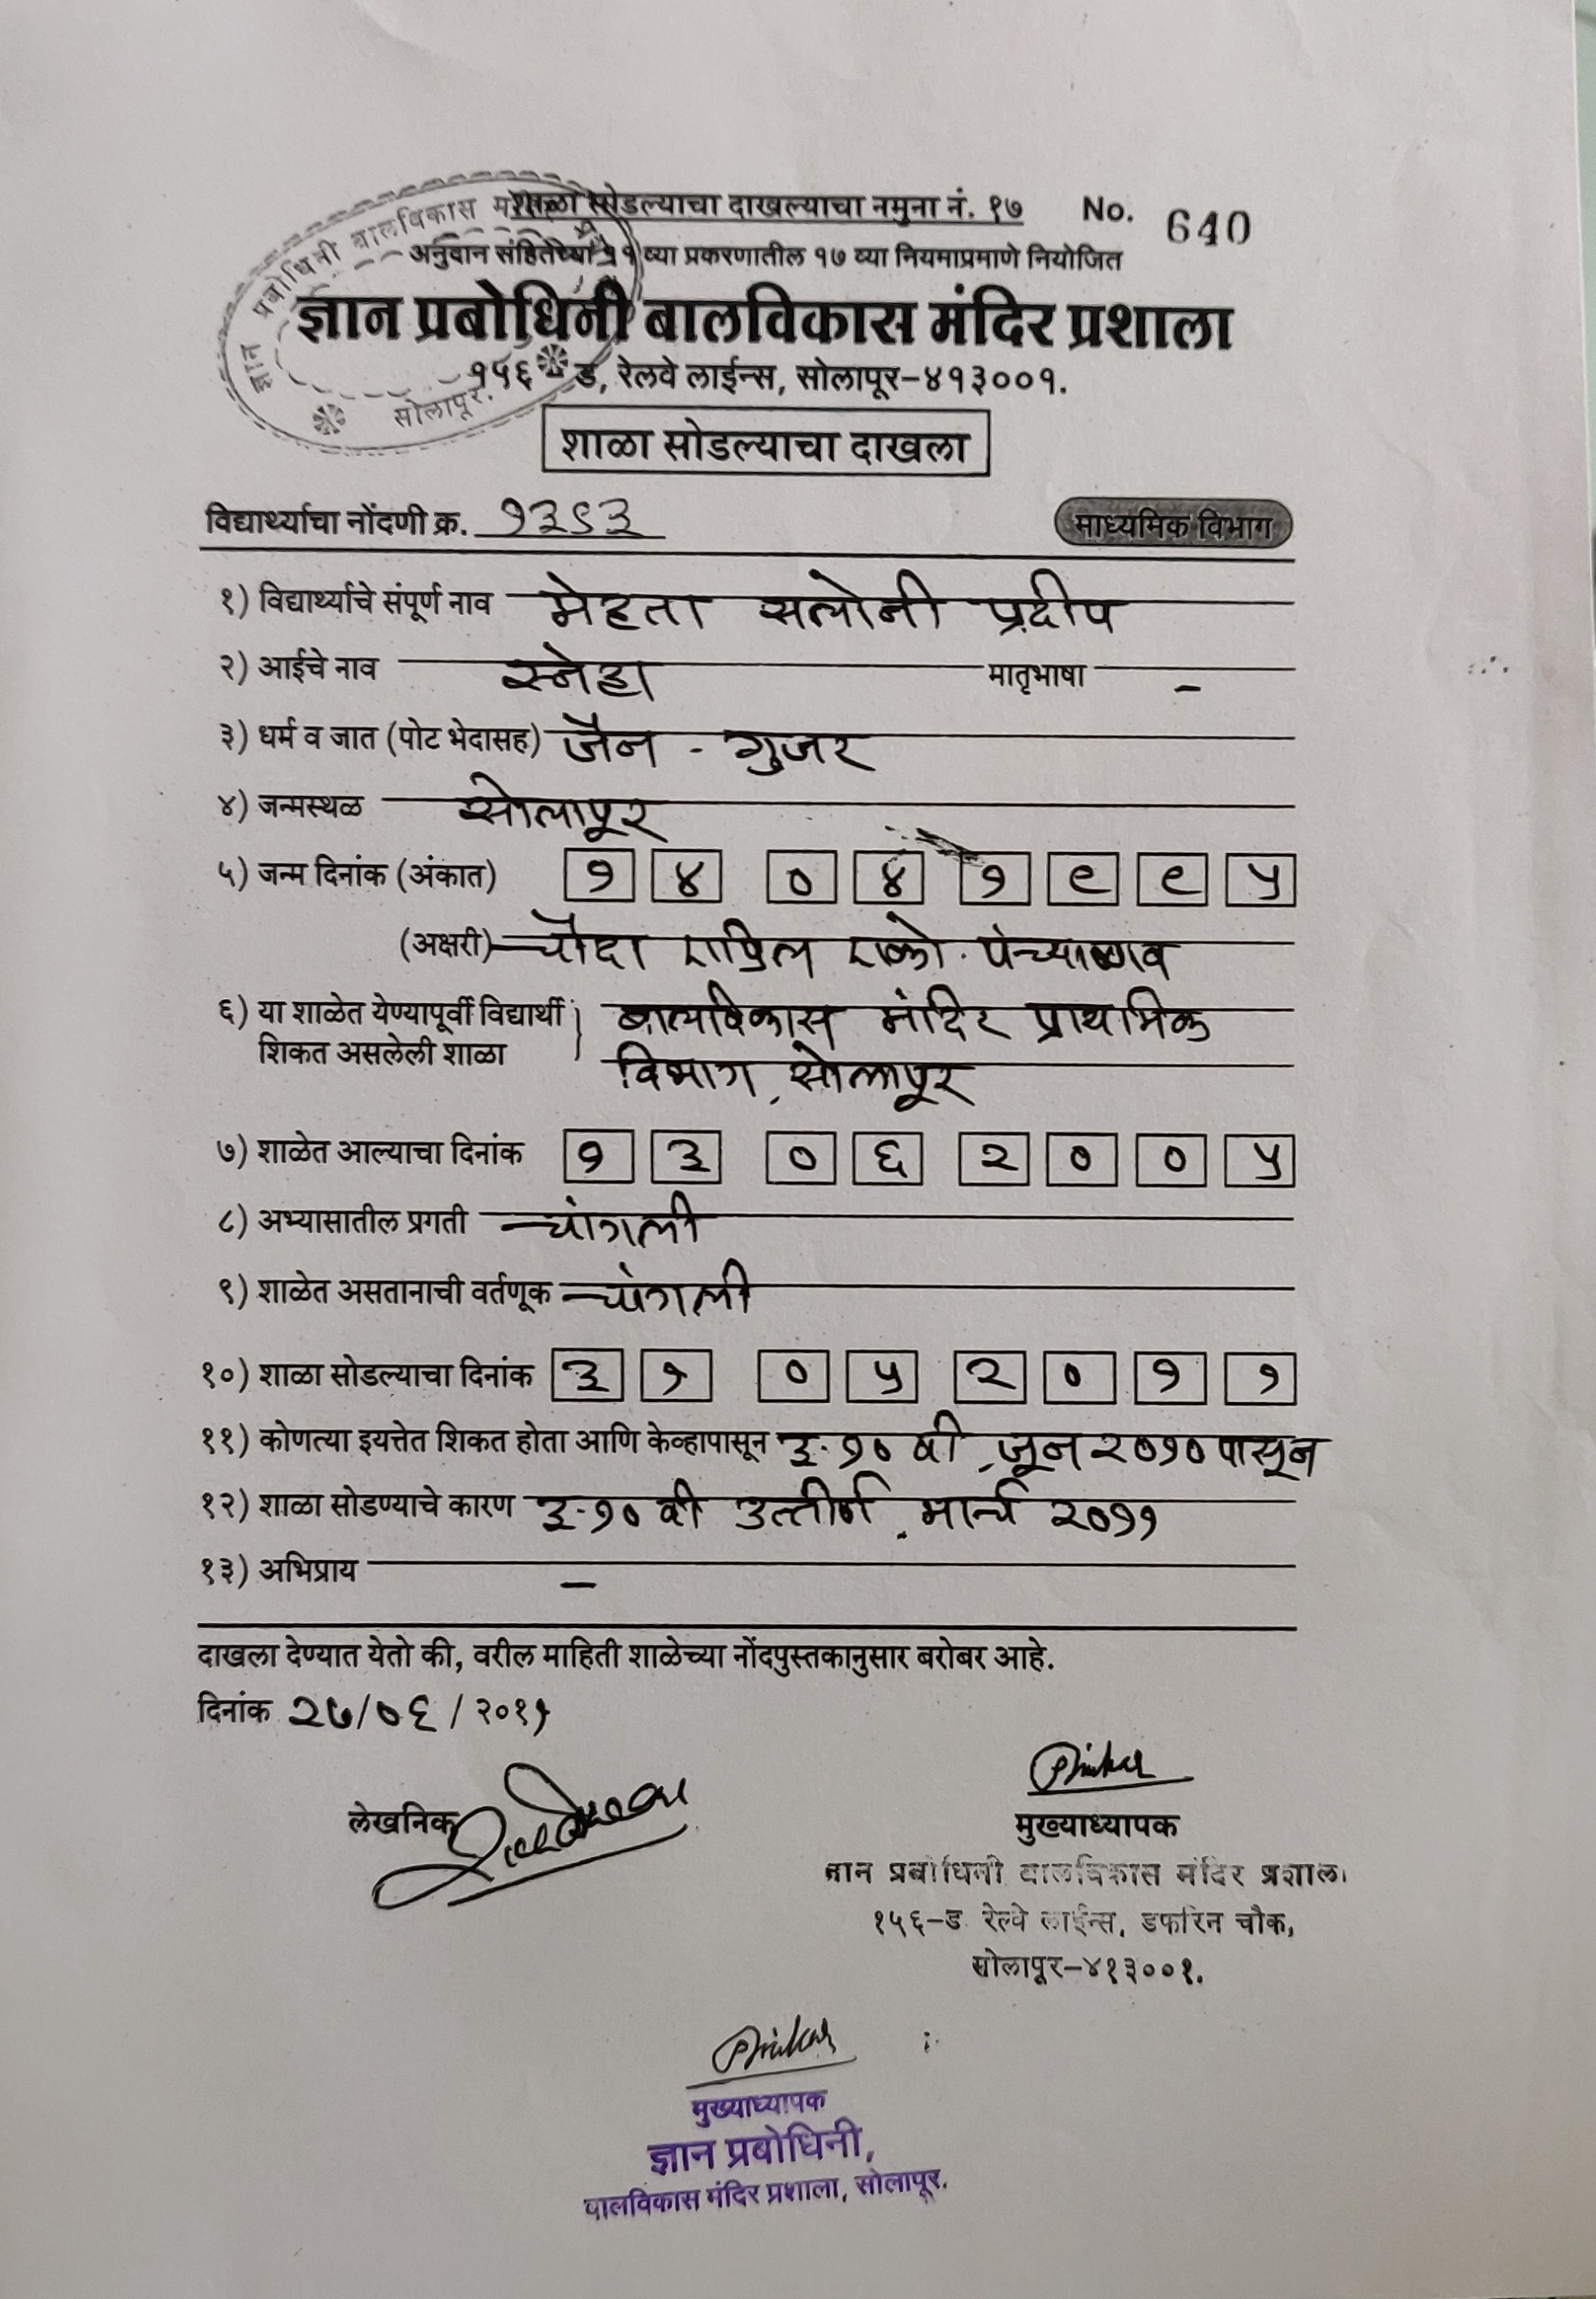 शाळा सोडल्याचा दाखल्याचा नमुना नं. १७ No. 640
अनुदान संहितेच्या ११ व्या प्रकरणातील १७ व्या नियमाप्रमाणे नियोजित
ज्ञान प्रबोधिनी बालविकास मंदिर प्रशाला
१५६ ड, रेलवे लाईन्स, सोलापूर-४१३००१.
ज्ञान प्रबोधिनी बालविकास
सोलापूर.
शाळा सोडल्याचा दाखला
विद्यार्थ्याचा नोंदणी क्र. १३९३
माध्यमिक विभाग
१) विद्यार्थ्याचे संपूर्ण नाव मेहता सलोनी प्रदीप
२) आईचे नाव स्नेहा मातृभाषा -
३) धर्म व जात (पोट भेदासह) जैन - गुजर
४) जन्मस्थळ सोलापूर
५) जन्म दिनांक (अंकात) १ ४ ० ४ १ ९ ९ ५
(अक्षरी) चौदा एप्रिल एको. पंच्याण्णव
६) या शाळेत येण्यापूर्वी विद्यार्थी बालविकास मंदिर प्राथमिक
शिकत असलेली शाळा विभाग, सोलापूर
७) शाळेत आल्याचा दिनांक १ ३ ० ६ २ ० ० ५
८) अभ्यासातील प्रगती चांगली
९) शाळेत असतानाची वर्तणूक चांगली
१०) शाळा सोडल्याचा दिनांक ३ १ ० ५ २ ० १ १
११) कोणत्या इयत्तेत शिकत होता आणि केव्हापासून इ. १० वी, जून २०१० पासून
१२) शाळा सोडण्याचे कारण इ. १० वी उत्तीर्ण, मार्च २०११
१३) अभिप्राय -
दाखला देण्यात येतो की, वरील माहिती शाळेच्या नोंदपुस्तकानुसार बरोबर आहे.
दिनांक २७/०६/२०११
लेखनिक
मुख्याध्यापक
ज्ञान प्रबोधिनी बालविकास मंदिर प्रशाला
१५६-ड रेल्वे लाईन्स, डफरिन चौक,
सोलापूर-४१३००१.
मुख्याध्यापक
ज्ञान प्रबोधिनी,
बालविकास मंदिर प्रशाला, सोलापूर.